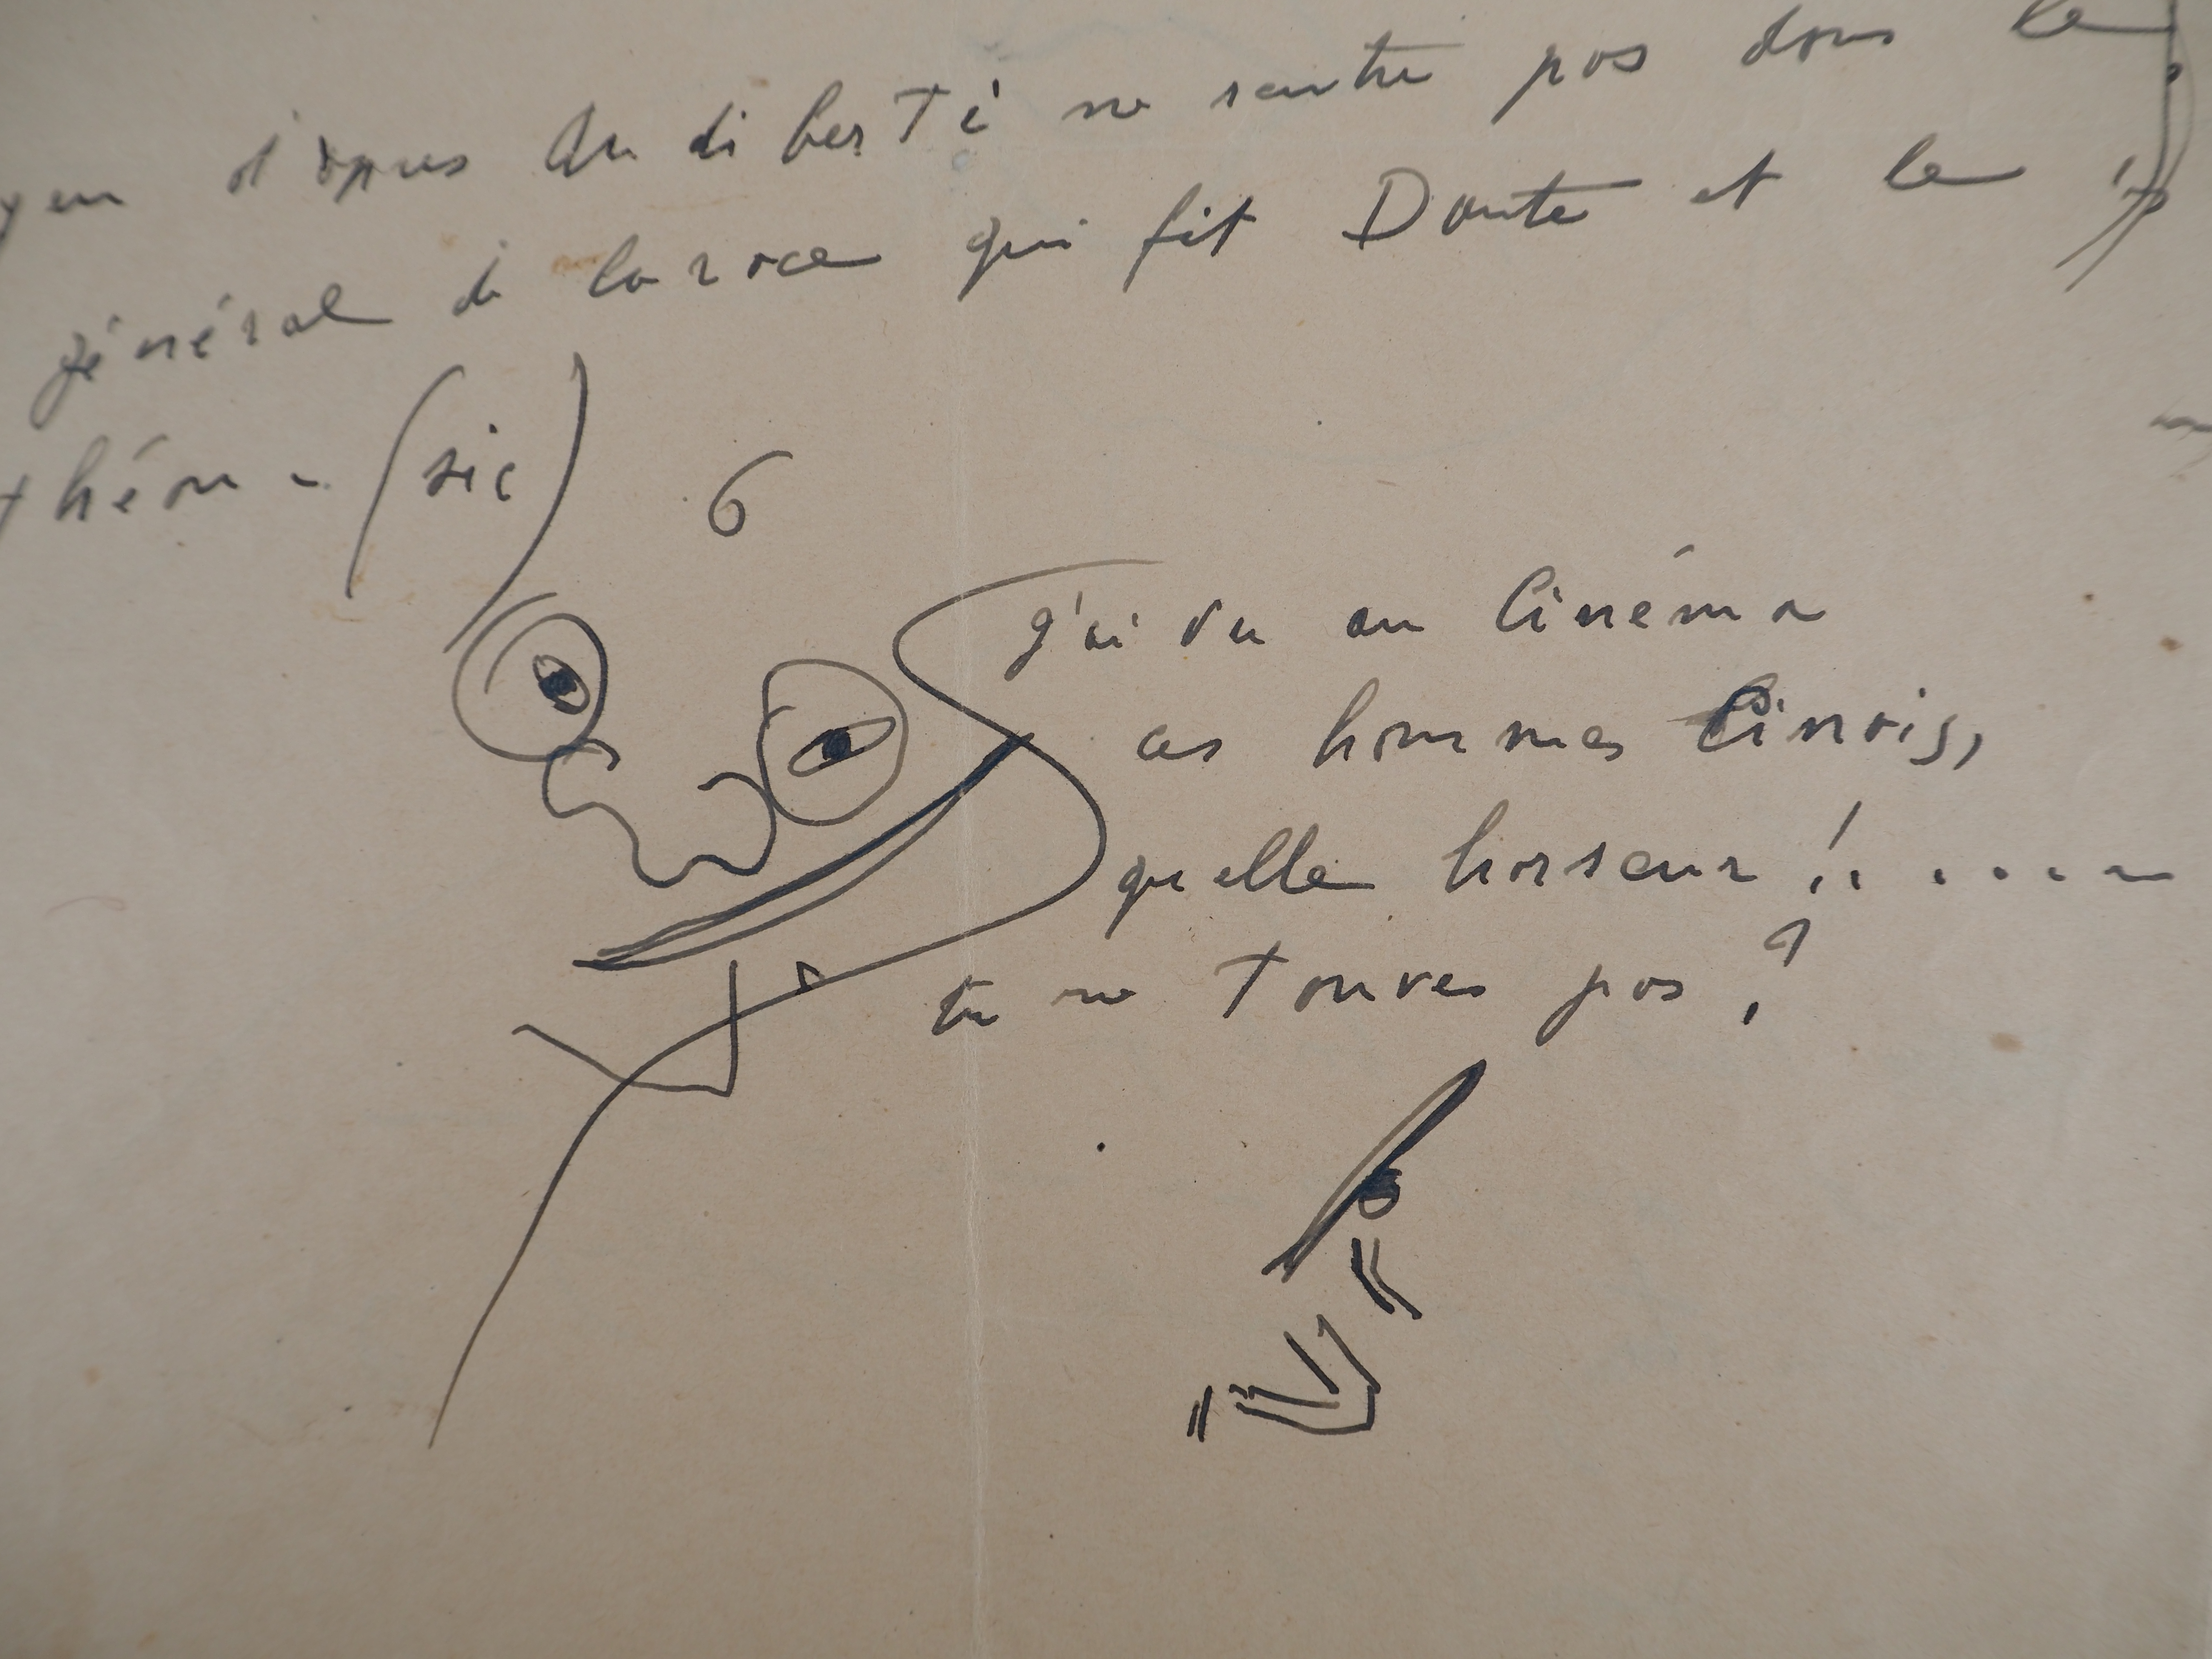 yen d'apres Audiberti ne rentre pas dans le
général de la race qui fit Dante et le
théon - (sic)
6
J'ai vu au Cinéma
ces hommes Cinois,
quelle horreur !......
tu ne touves pas ?